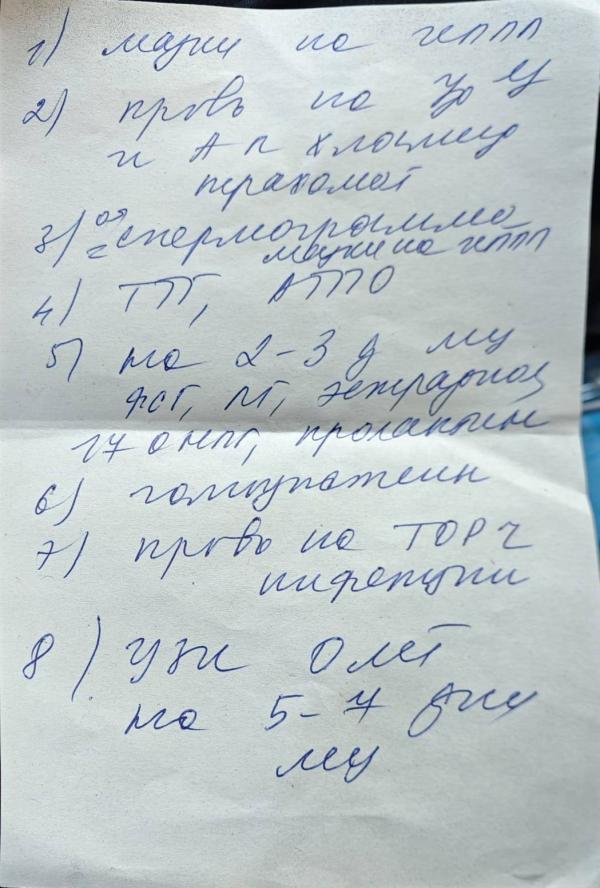 1) мазки на иппп
2) кровь на
и Ат к хламид
трахомат
3) спермограмма
мазки на иппп
4) ТТГ, АТПО
5) на 2-3 д мц
ФСГ, ЛГ, эстрадиол,
17 ОНПГ, пролактин
6) гомоцистеин
7) кровь на ТОРЧ
инфекции
8) УЗИ ОМТ
на 5-7 дни
мц